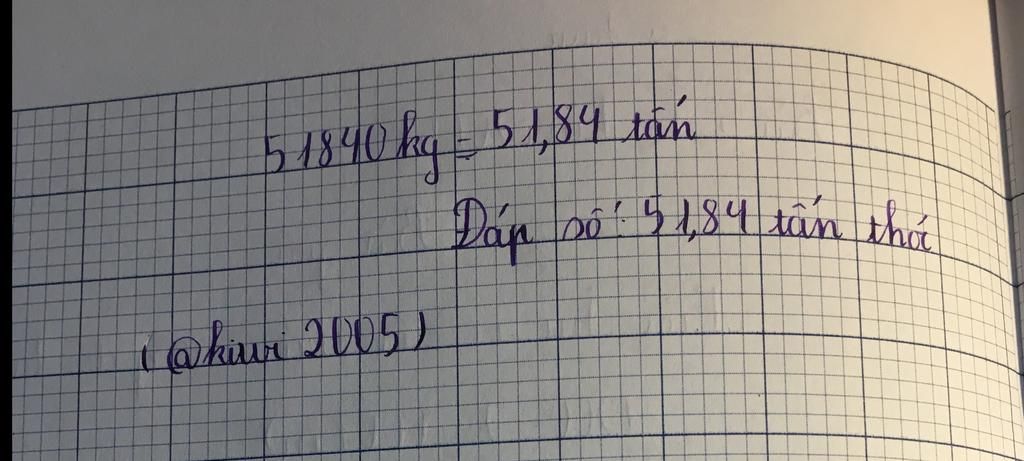 51840 kg = 51,84 tấn
Đáp số: 51,84 tấn thó
(@kiwi 2005)